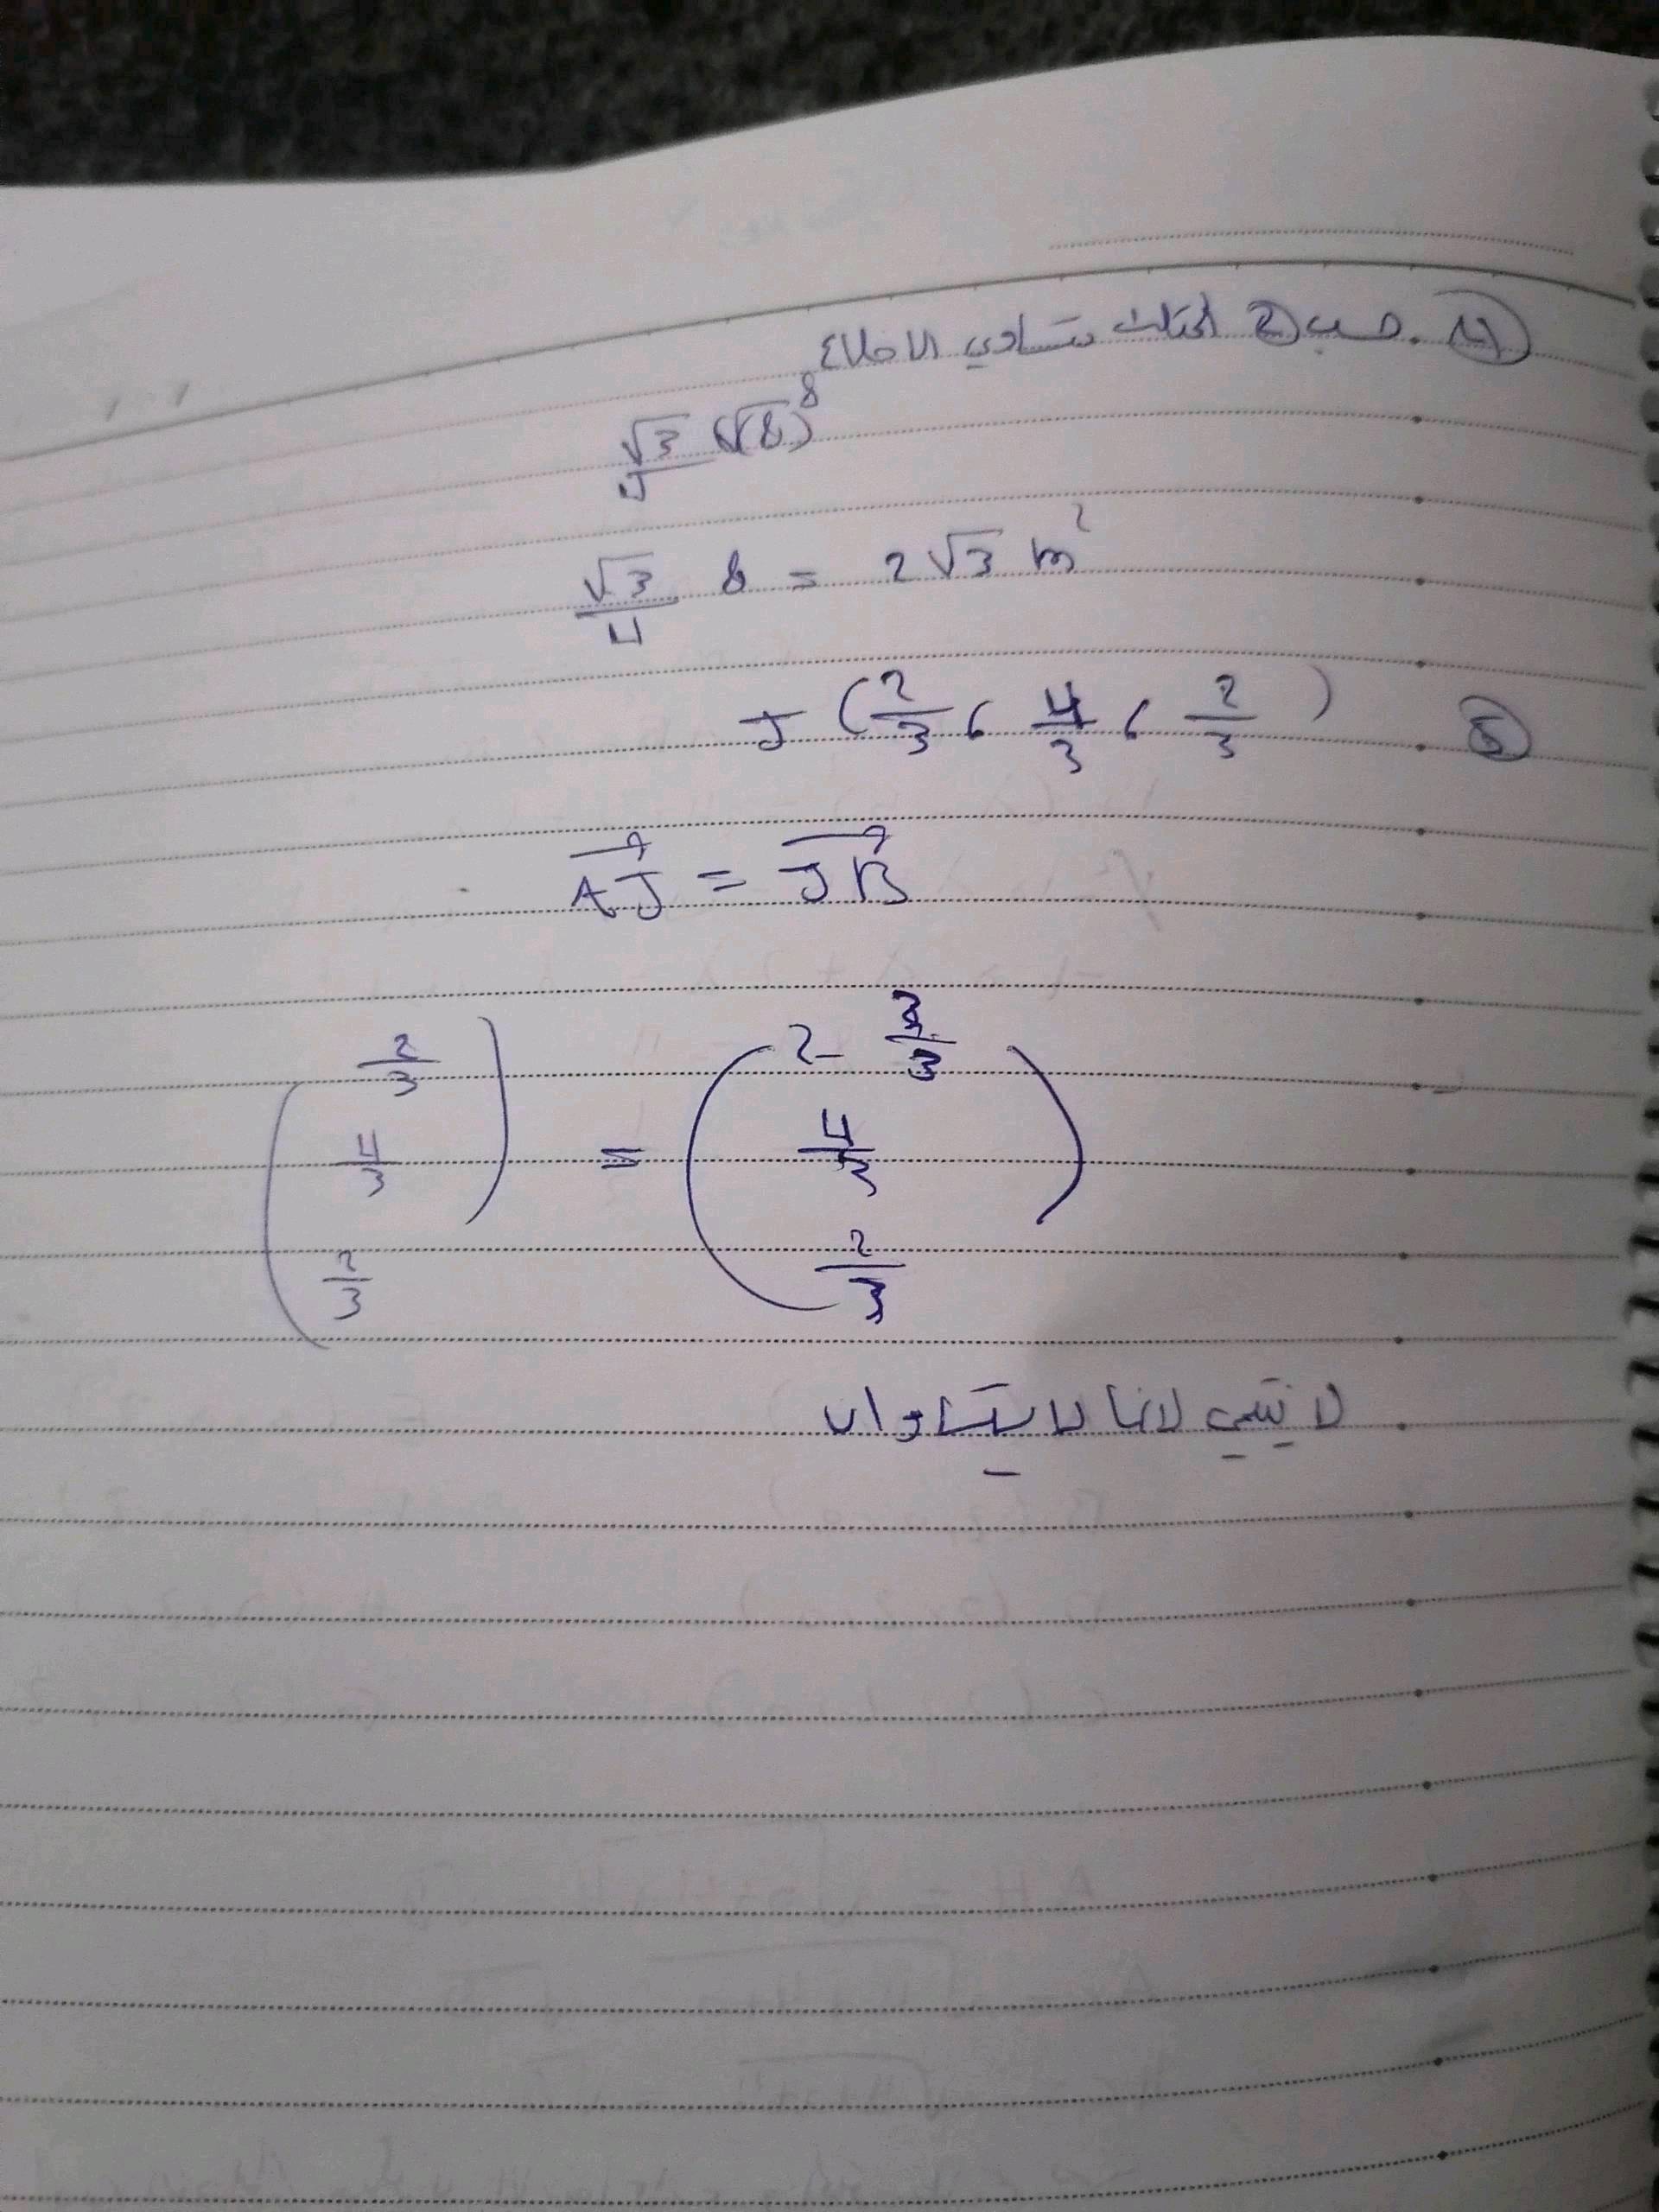 ④ حسب ② المثلث متساوي الاضلاع
√3/4 (√8)^8
√3/4 8 = 2√3 m²
⑤ J (2/3, 4/3, 2/3)
AJ = JB
(2/3, 4/3, 2/3) = (2 - 2/3, 4/3, 2/3)
لا تنتمي لانها لا يتساويان